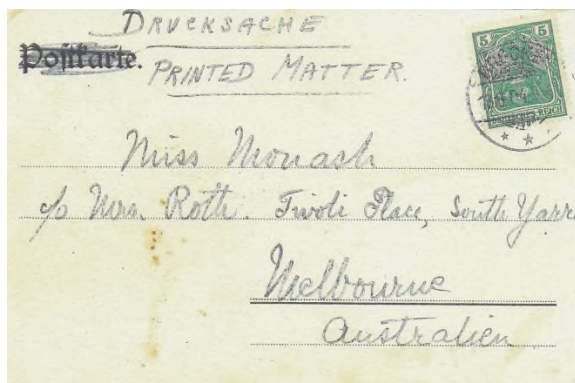 DRUCKSACHE
Postkarte.
PRINTED MATTER.
5 5
Miss Monash
c/o Mrs. Roth. Tivoli Place, South Yarra
Melbourne
Australien